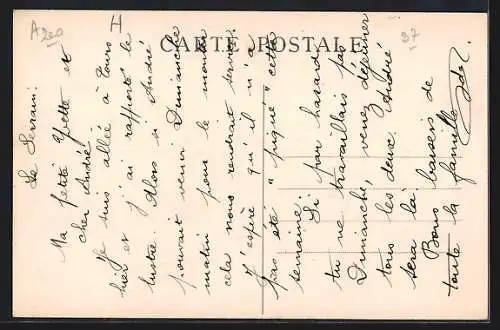 CARTE POSTALE
A 200
H
37
Le Serrain:
Ma petite Yvette et
cher André
Je suis allée à Tours
hier et j'ai rapporté le
lustre. Alors si André
pouvait venir Dimanche
matin pour le monter
cela nous rendrait service.
J'espère qu'il n'a
pas été "piqué" cette
semaine.
Si par hasard
tu ne travaillais pas
Dimanche, venez déjeuner
tous les deux. André
sera là.
Bons baisers de
toute la famille